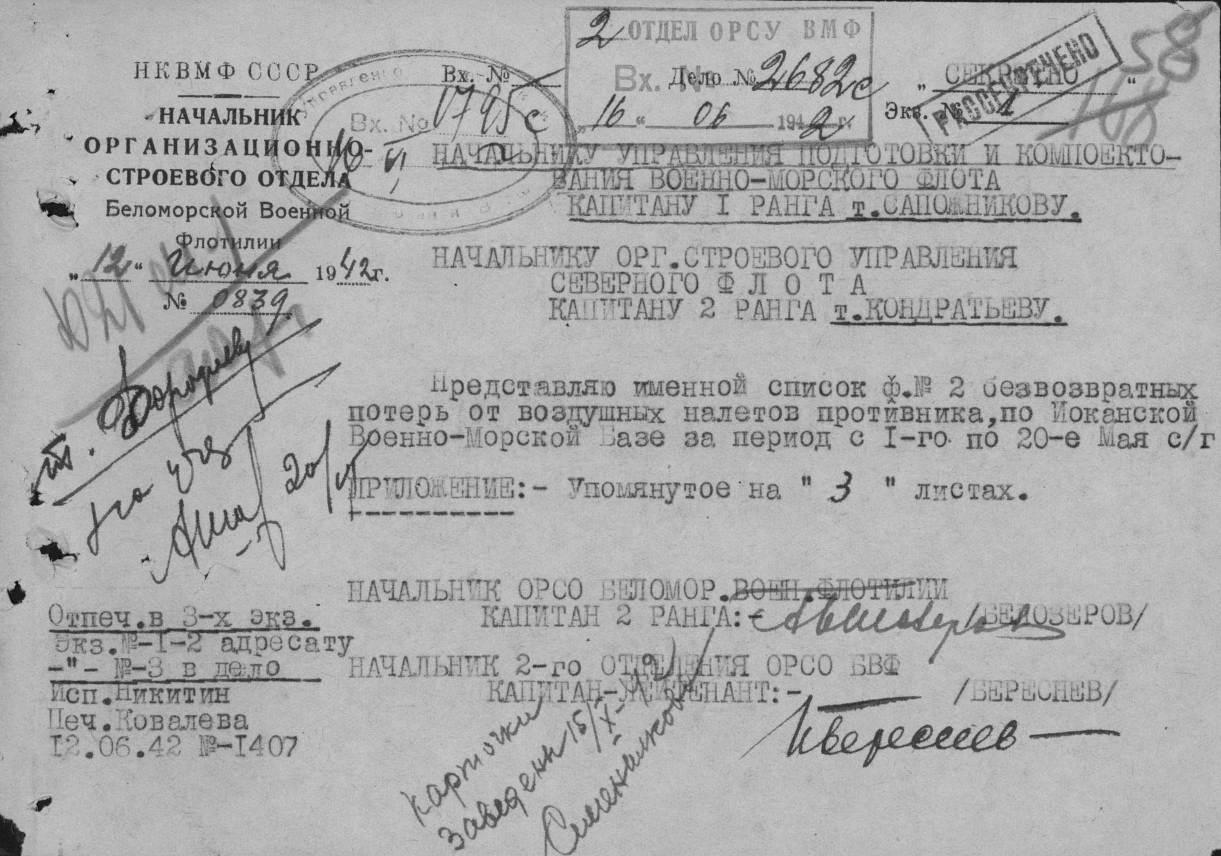 НКВМФ СССР
НАЧАЛЬНИК
ОРГАНИЗАЦИОННО-
СТРОЕВОГО ОТДЕЛА
Беломорской Военной
Флотилии
„12“ Июня 1942г.
№ 0839
Вх. №
Вх. No 0795с
16 VI
2 ОТДЕЛ ОРСУ ВМФ
Вх. №
Дело № 2682с
„16“ 06 1942г.
„СЕКРЕТНО“
Экз. № 1
РАССЕКРЕЧЕНО
58
НАЧАЛЬНИКУ УПРАВЛЕНИЯ ПОДГОТОВКИ И КОМПОЕКТО-
ВАНИЯ ВОЕННО-МОРСКОГО ФЛОТА
КАПИТАНУ I РАНГА т.САПОЖНИКОВУ.
НАЧАЛЬНИКУ ОРГ.СТРОЕВОГО УПРАВЛЕНИЯ
СЕВЕРНОГО Ф Л О Т А
КАПИТАНУ 2 РАНГА т.КОНДРАТЬЕВУ.
Представляю именной список ф.№ 2 безвозвратных
потерь от воздушных налетов противника,по Иоканской
Военно-Морской Базе за период с I-го по 20-е Мая с/г
ПРИЛОЖЕНИЕ:- Упомянутое на " 3 " листах.
НАЧАЛЬНИК ОРСО БЕЛОМОР.ВОЕН.ФЛОТИЛИИ
КАПИТАН 2 РАНГА:- /БЕЛОЗЕРОВ/
НАЧАЛЬНИК 2-го ОТДЕЛЕНИЯ ОРСО БВФ
КАПИТАН-ЛЕЙТЕНАНТ:- /БЕРЕСНЕВ/
Отпеч.в 3-х экз.
Экз.№-I-2 адресату
-"- №-3 в дело
Исп.Никитин
Печ.Ковалева
I2.06.42 №-I407
на учет
20/VI
Карточки
заведены 15/X-42